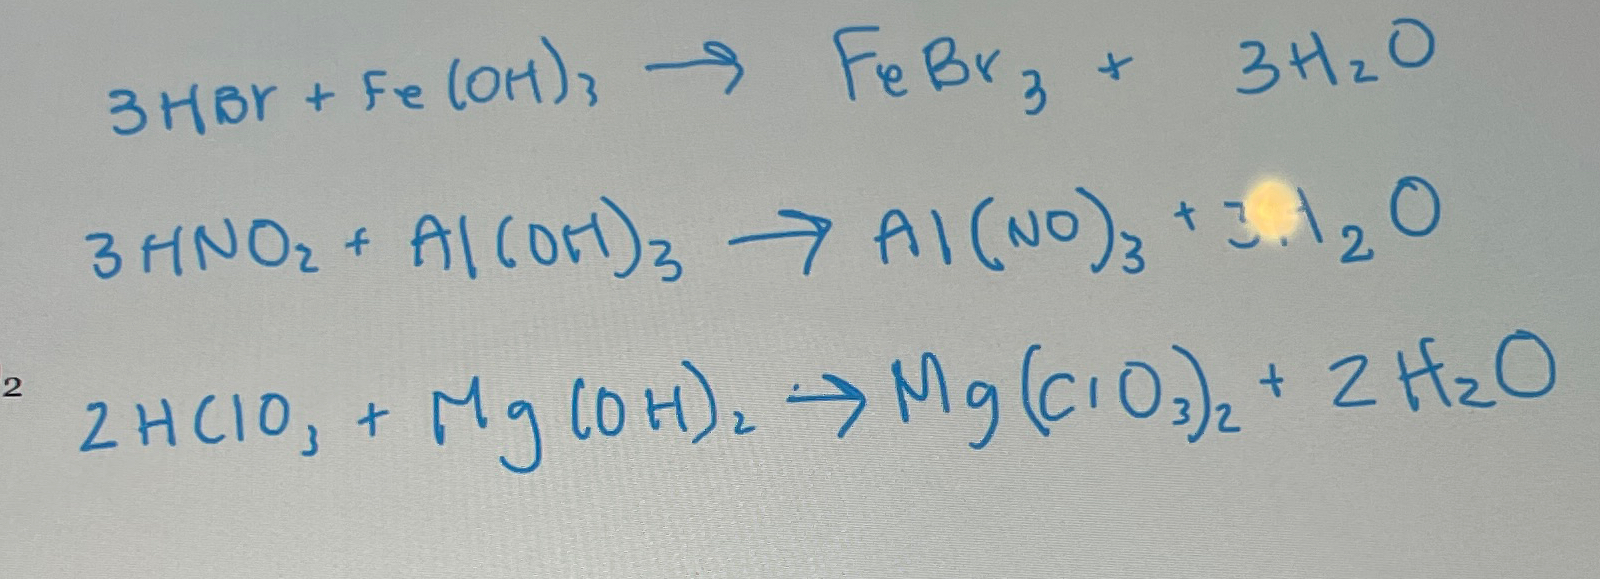 3HBr + Fe(OH)₃ → FeBr₃ + 3H₂O
3HNO₂ + Al(OH)₃ → Al(NO)₃ + 3H₂O
2
2HClO₃ + Mg(OH)₂ → Mg(ClO₃)₂ + 2H₂O